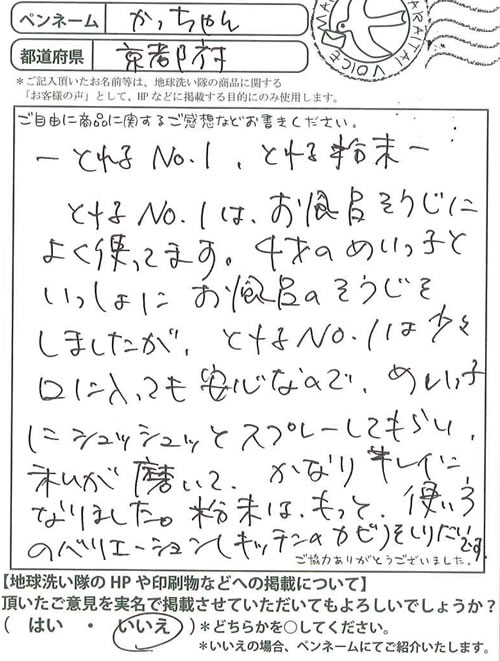 ペンネーム かっちゃん
都道府県 京都府
＊ご記入頂いたお名前等は、地球洗い隊の商品に関する
「お客様の声」として、HPなどに掲載する目的にのみ使用します。
ご自由に商品に関するご感想などお書きください。
ーとれるNo.1、とれる粉末ー
とれるNo.1は、お風呂そうじに
よく使ってます。4才のめいっ子と
いっしょに お風呂のそうじを
しましたが、とれるNo.1は少々
口に入っても安心なので、めいっ子
にシュッシュッとスプレーしてもらい、
私が磨いて、かなりキレイに
なりました。粉末は、もっと、使い方
のバリエーション(キッチンのカビ)を知りたいです。
ご協力ありがとうございました。
【地球洗い隊のHPや印刷物などへの掲載について】
頂いたご意見を実名で掲載させていただいてもよろしいでしょうか？
( はい ・ いいえ )＊どちらかを○してください。
＊いいえの場合、ペンネームにてご紹介いたします。